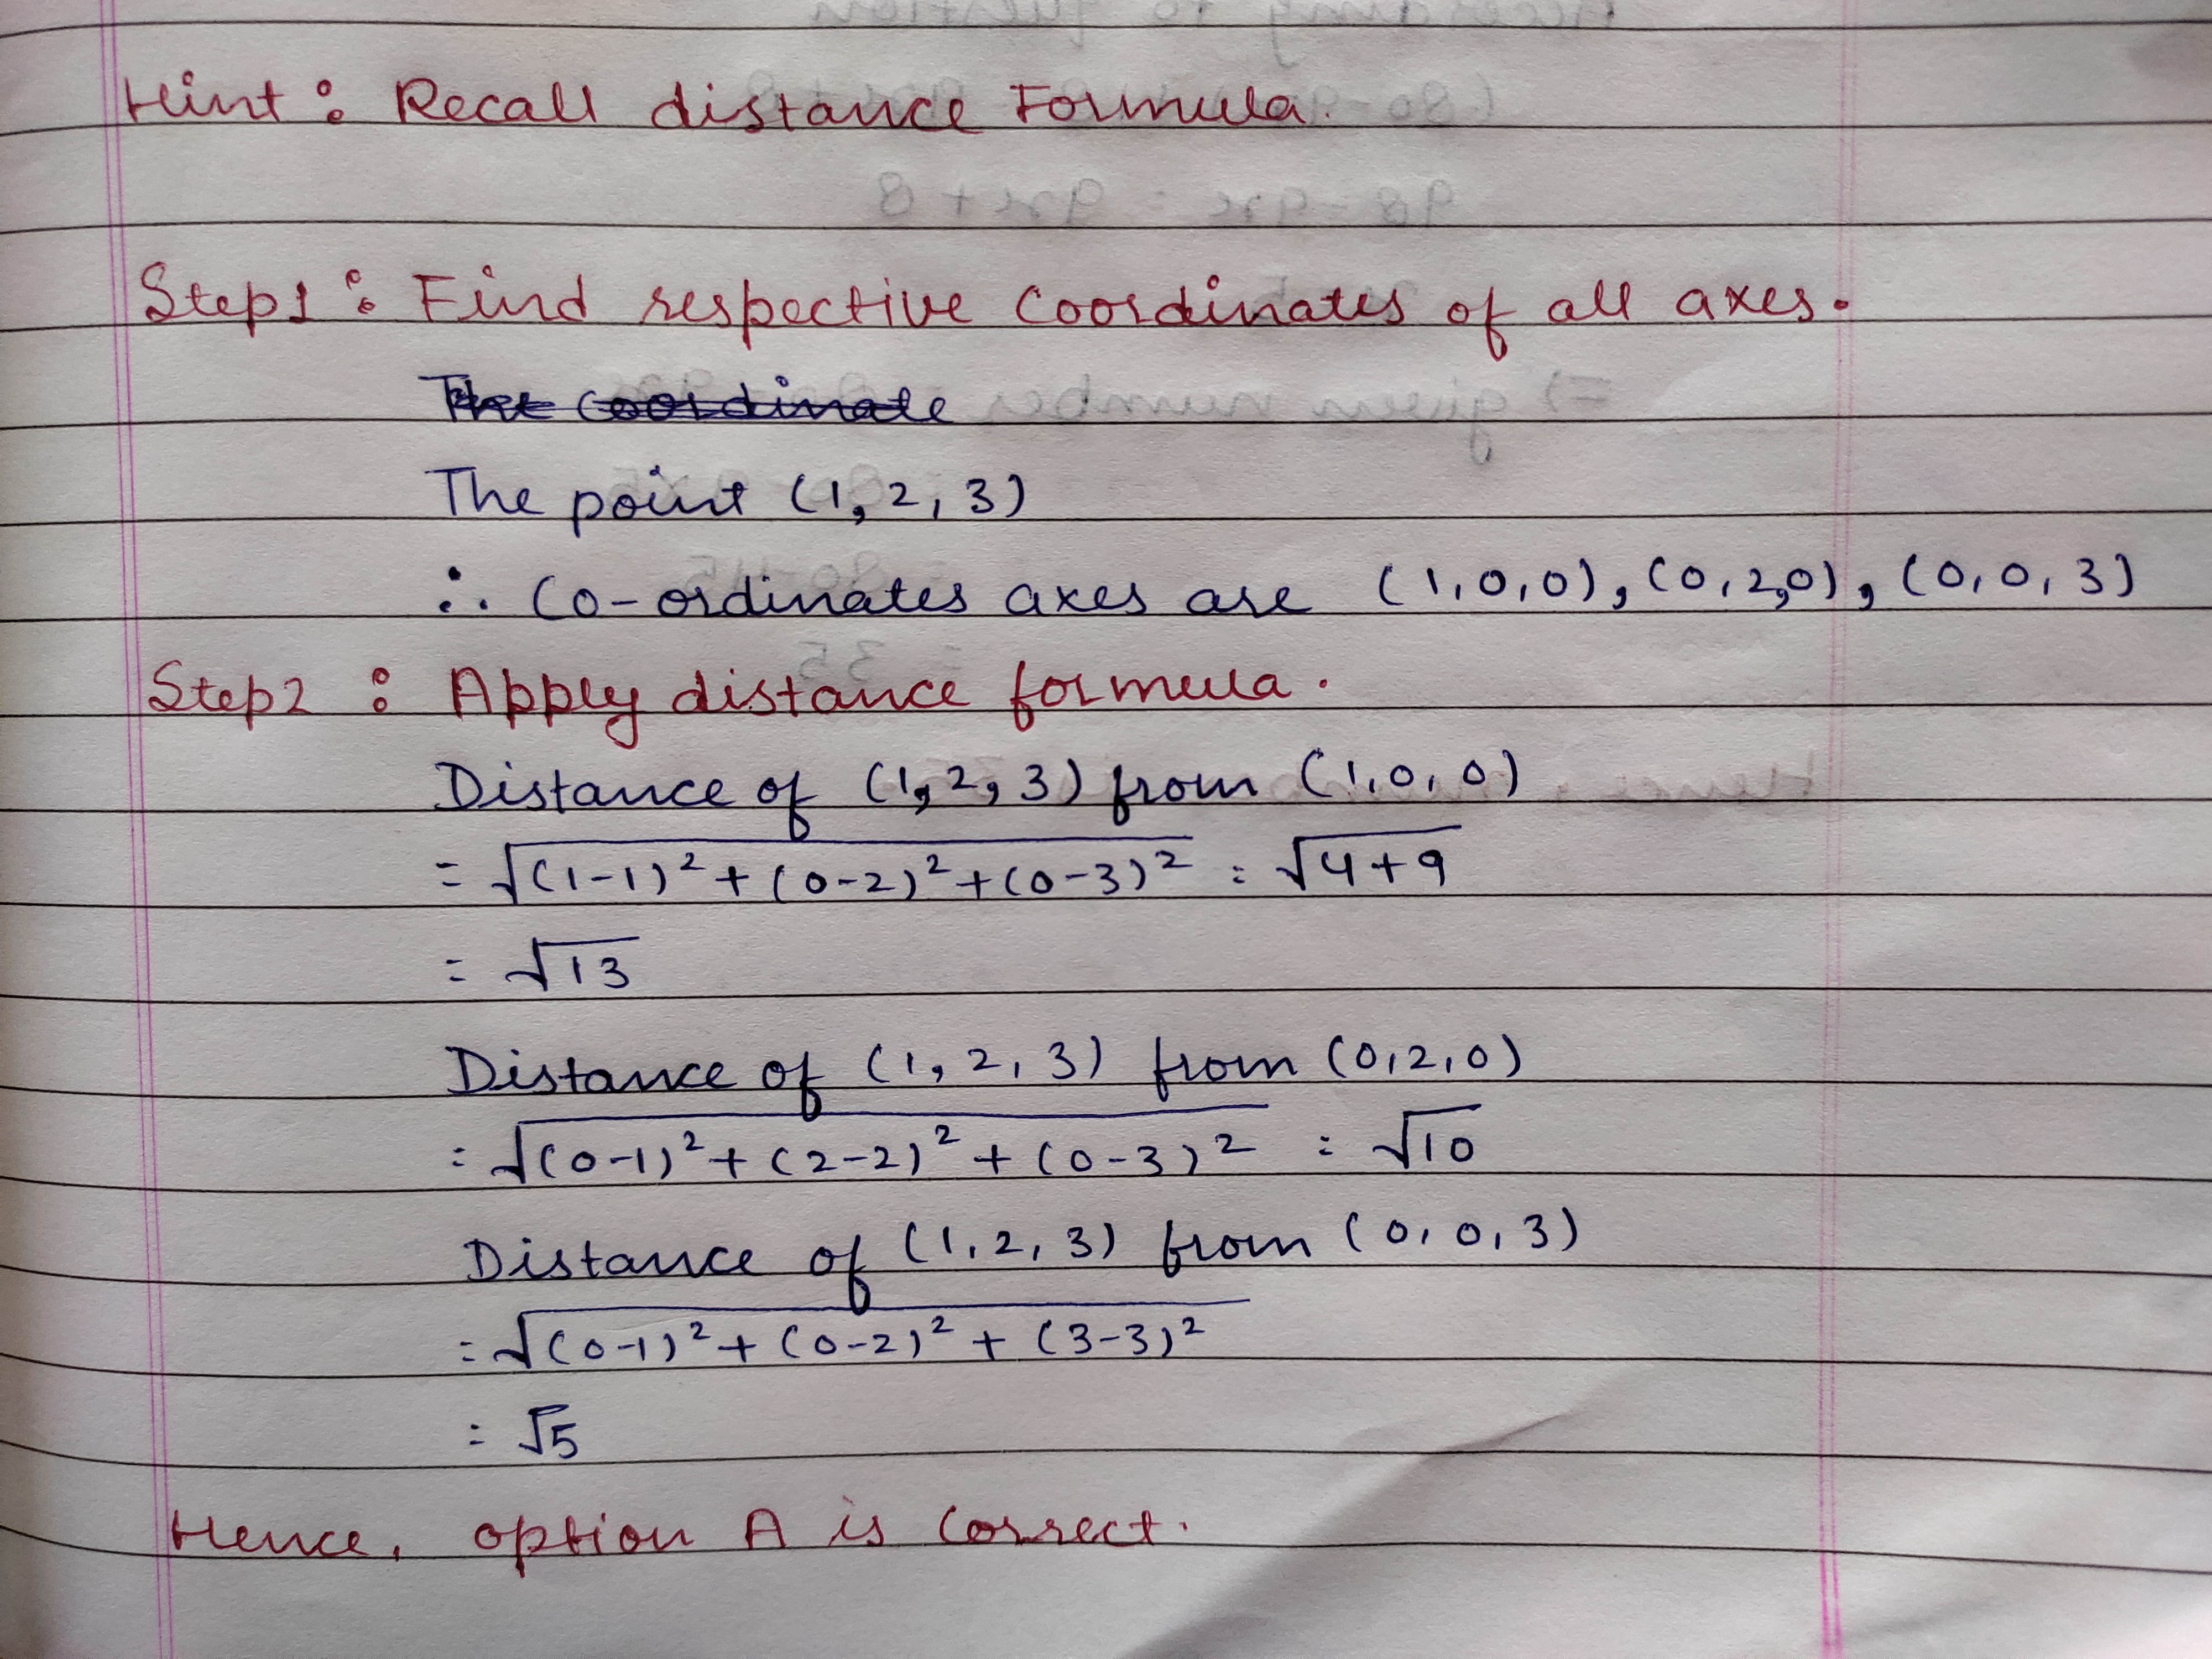 Hint : Recall distance Formula.
Step1 : Find respective coordinates of all axes.
The coordinate
The point (1, 2, 3)
∴ Co-ordinates axes are (1,0,0), (0,2,0), (0,0,3)
Step2 : Apply distance formula.
Distance of (1, 2, 3) from (1,0,0)
= √(1-1)² + (0-2)² + (0-3)² = √4+9
= √13
Distance of (1, 2, 3) from (0,2,0)
= √(0-1)² + (2-2)² + (0-3)² = √10
Distance of (1, 2, 3) from (0,0,3)
= √(0-1)² + (0-2)² + (3-3)²
= √5
Hence, option A is correct.